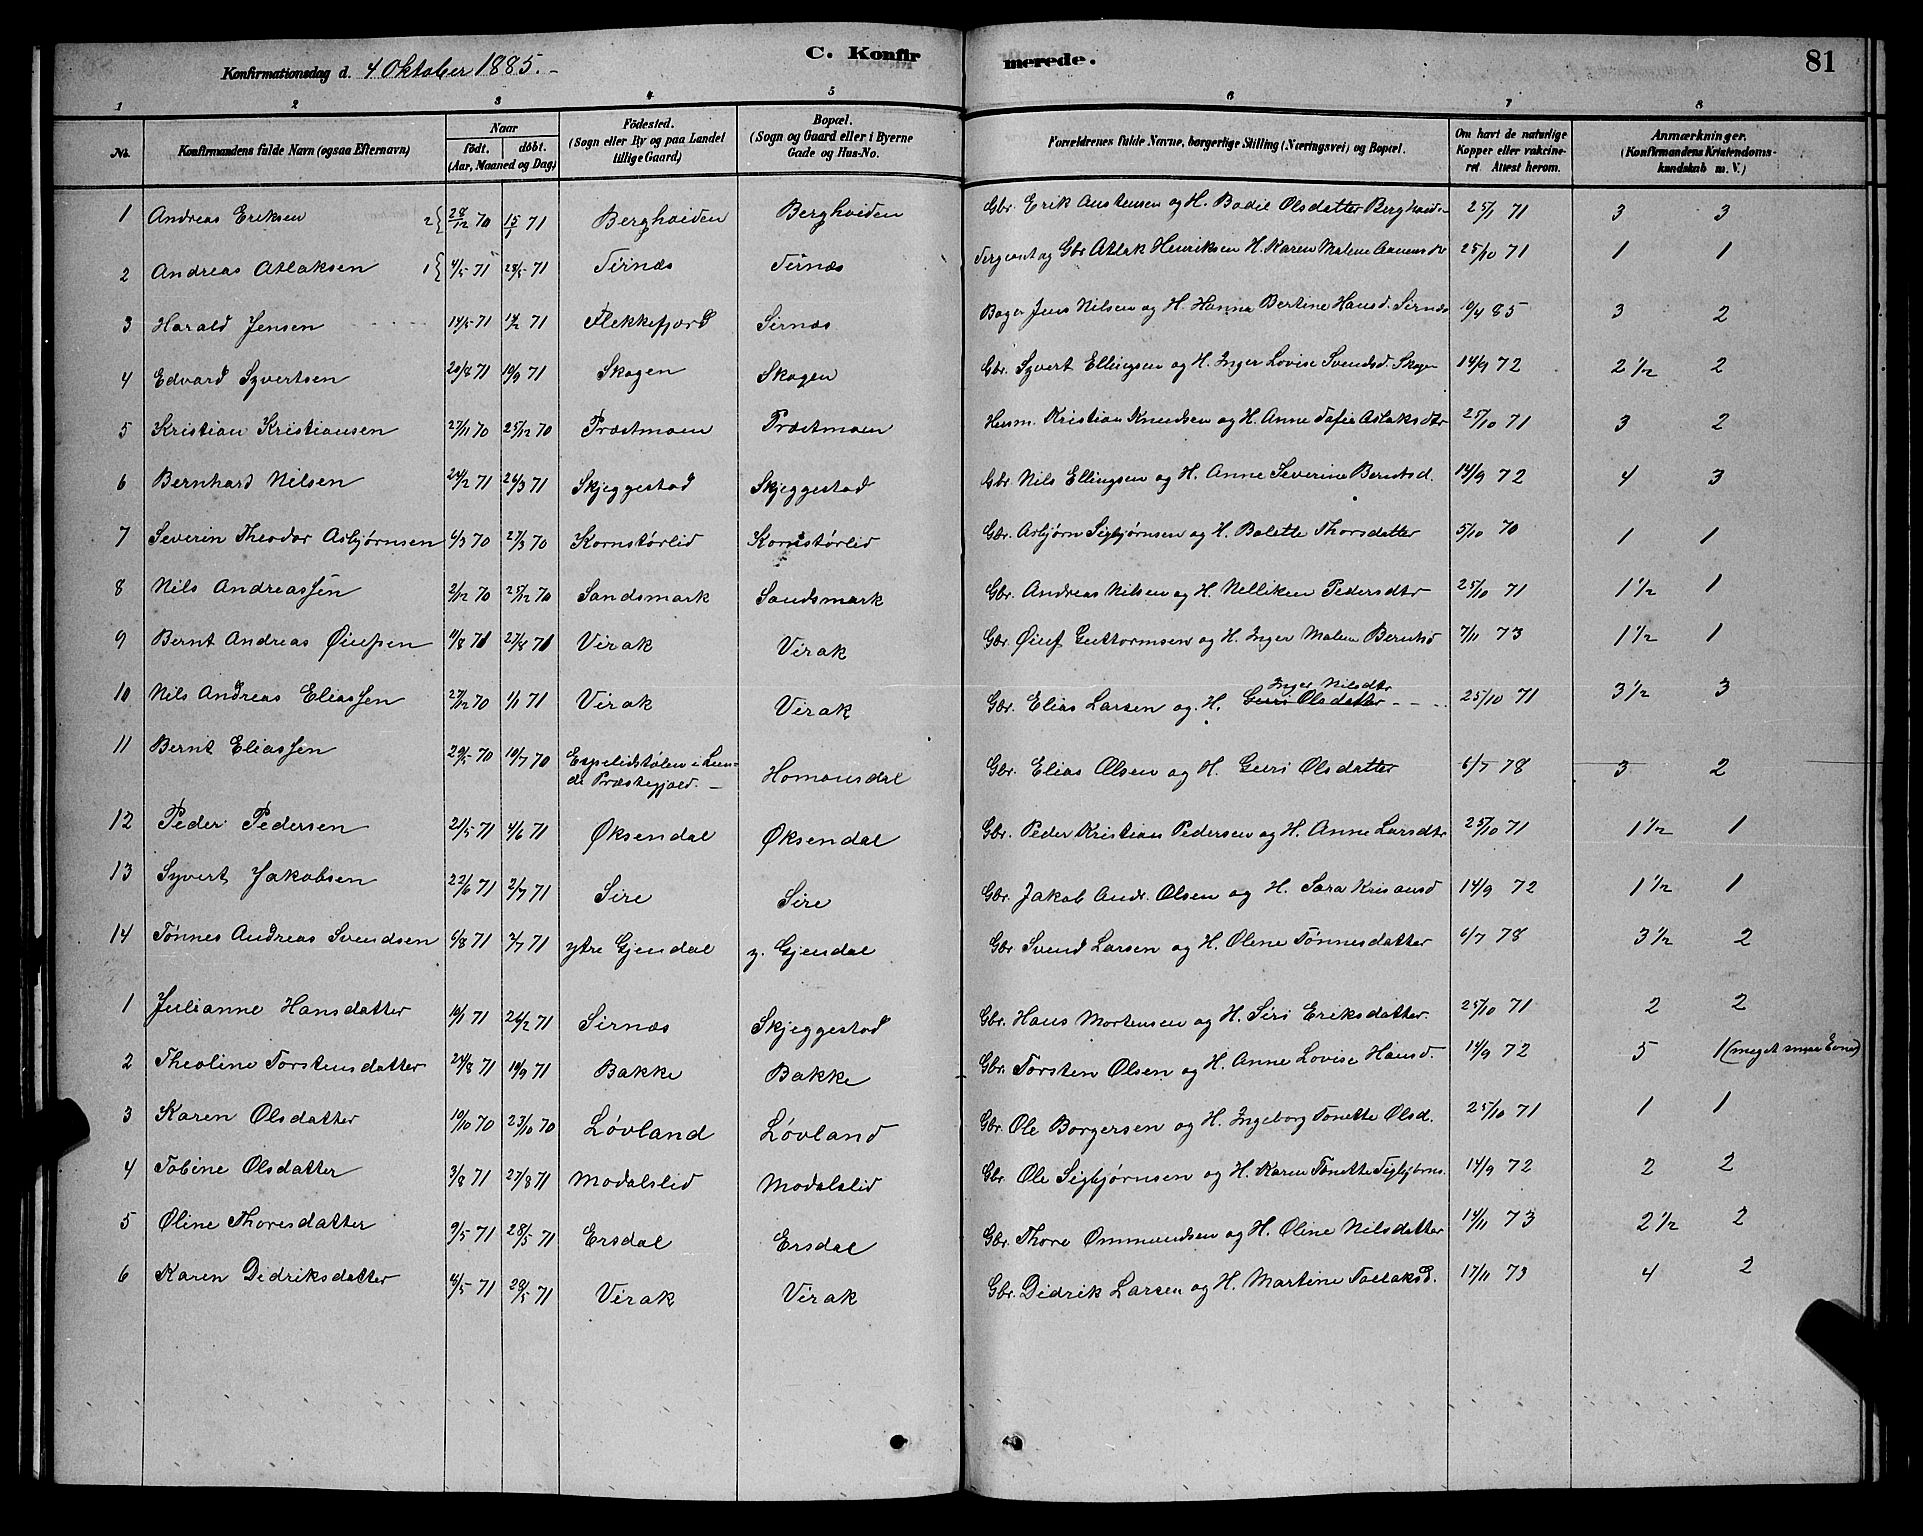 C. Konfirmerede.
81
Konfirmationsdag d. 4 Oktober 1885.
1 2 3 4 5 6 7 8
No. Konfirmandens fulde Navn (ogsaa Efternavn) Naar födt. döbt. (Aar, Maaned og Dag) Födested. (Sogn eller By og paa Landet tillige Gaard) Bopæl. (Sogn og Gaard eller i Byerne Gade og Hus-No. Forældrenes fulde Navne, borgerlige Stilling (Næringsvei) og Bopæl. Om havt de naturlige Kopper eller vakcineret Attest herom. Anmærkninger. (Konfirmandens Kristendomskundskab m. V.)
1 Andreas Eriksen 2{ 28/12 70 15/1 71 Bergheiden Bergheiden Gbr. Erik Austensen og H. Bodil Olsdatter 25/1 71 3 3
2 Andreas Atlaksen 1{ 4/5 71 28/5 71 Sirnæs Sirnæs Sergeant og Gbr Atlak Henriksen H. Karen Malene 25/10 71 1 1
3 Harald Jensen 14/5 71 71 Flekkefjord Sirnæs Bager Jens Nilsen og H. Hanna Bertine Hansd. Sirnæs 85 3 2
4 Edvard Syvertsen 20/8 71 10/9 71 Skogen Skogen Gbr. Syvert Ellingsen og H. Inger Lovise Svendsd. Skogen 14/9 72 2 1/2 2
5 Kristian Kristiansen 27/11 70 25/12 70 Præstmoen Præstmoen Husm. Kristian Knudsen og H. Anne Sofie Aslaksdtr 25/10 71 3 2
6 Bernhard Nilsen 24/2 71 26/3 71 Skjeggestad Skjeggestad Gbr. Nils Ellingsen og H. Anne Severine Berntsd. 14/9 72 4 3
7 Severin Theodor Asbjørnsen 6/3 70 27/3 70 Kornstørlid Kornstørlid Gbr. Asbjørn Sigbjørnsen og H. Bolette Thorsdatter 5/10 70 1 1
8 Nils Andreassen 2/12 70 25/12 70 Sandsmark Sandsmark Gbr. Andreas Nilsen og H. Nelliken Pedersdtr 25/10 71 1 1/2 1
9 Bernt Andreas Øiufsen 11/8 71 27/8 71 Virak Virak Gbr. Øiuf Guttormsen og H. Inger Malen Berntsd 7/11 73 1 1/2 1
10 Nils Andreas Eliassen 27/12 70 1/1 71 Virak Virak Gbr. Elias Larsen og H. Guri Olsdatter Inger Nilsdtr 25/10 71 3 1/2 3
11 Bernt Eliassen 29/5 70 10/7 70 Espelidstølen i Lunde Præstegjæld. Homonsdal Gbr. Elias Olsen og H. Guri Olsdatter 6/7 78 3 2
12 Peder Pedersen 21/5 71 4/6 71 Øksendal Øksendal Gbr. Peder Kristian Pedersen og H. Anne Larsdtr 25/10 71 1 1/2 1
13 Syvert Jakobsen 22/6 71 2/7 71 Sire Sire Gbr. Jakob Andr. Olsen og H. Sara 14/9 72 1 1/2 1
14 Tønnes Andreas Svendsen 6/8 71 71 ytre Gjendal y. Gjendal Gbr Svend Larsen og H. Olene Tønnesdatter 6/7 78 3 1/2 2
1 Julianne Hansdatter 71 26/2 71 Sirnæs Skjeggestad Gbr. Hans Mortensen og H. Siri Eriksdatter. 25/10 71 2 2
2 Theoline Torstensdatter 24/8 71 10/9 71 Bakke Bakke Gbr. Torsten Olsen og H. Anne Lovise Hansd. 14/9 72 5 1 (meget smaa Evner)
3 Karen Olsdatter 10/10 70 23/10 70 Løvland Løvland Gbr. Ole Borgersen og H. Ingeborg Tonette Olsd. 25/10 71 1 1
4 Tobine Olsdatter 3/8 71 27/8 71 Modalslid Modalslid Gbr. Ole Sigbjørnsen og H. Karen Tonette Sigbjørns. 14/9 72 2 2
5 Oline Thoresdatter 9/5 71 28/5 71 Ersdal Ersdal Gbr. Thore Ommundsen og H. Oline Nilsdatter 14/11 73 2 1/2 2
6 Karen Didriksdatter 71 28/5 71 Virak Virak Gbr. Didrik Larsen og H. Martine Tollaksd. 17/11 73 4 2